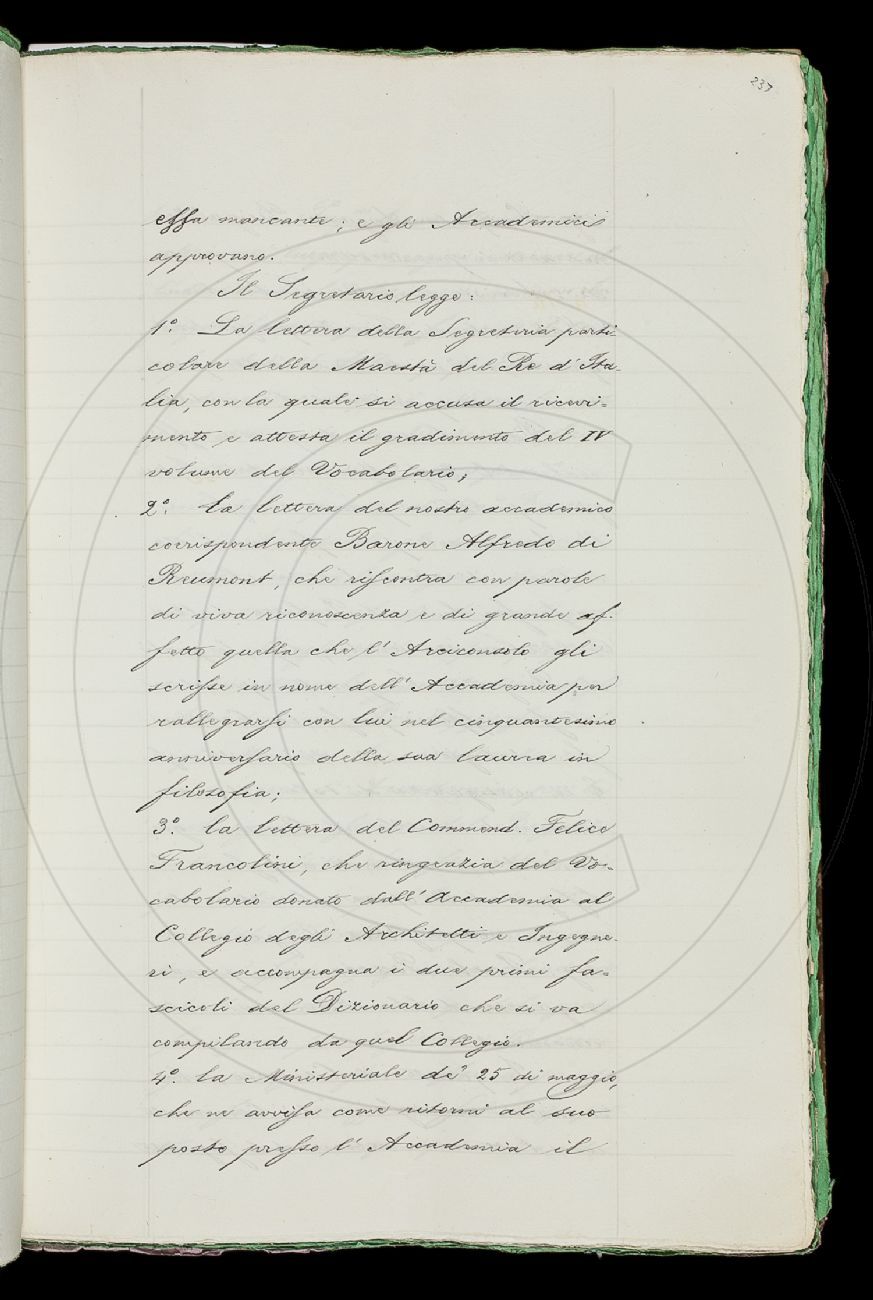 237
essa mancante; e gli Accademici
approvano.
Il Segretario legge:
1°. La lettera della Segreteria parti
colare della Maestà del Re d'Ita-
lia, con la quale si accusa il ricevi-
mento e attesta il gradimento del IV
volume del Vocabolario;
2°. la lettera del nostro accademico
corrispondente Barone Alfredo di
Reumont, che riscontra con parole
di viva riconoscenza e di grande af-
fetto quella che l'Arciconsolo gli
scrisse in nome dell'Accademia per
rallegrarsi con lui nel cinquantesimo
anniversario della sua laurea in
filosofia;
3°. la lettera del Commend. Felice
Francolini, che ringrazia del Vo-
cabolario donato dall'Accademia al
Collegio degli Architetti e Ingegne-
ri, e accompagna i due primi fa-
scicoli del Dizionario che si va
compilando da quel Collegio.
4°. la Ministeriale de' 25 di maggio,
che ne avvisa come ritorni al suo
posto presso l'Accademia il